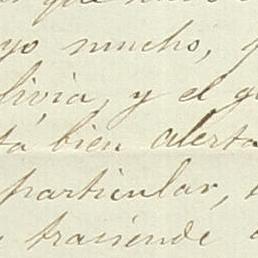 yo mucho,
livia, y el g
tá bien alerta
particular,
trasiende